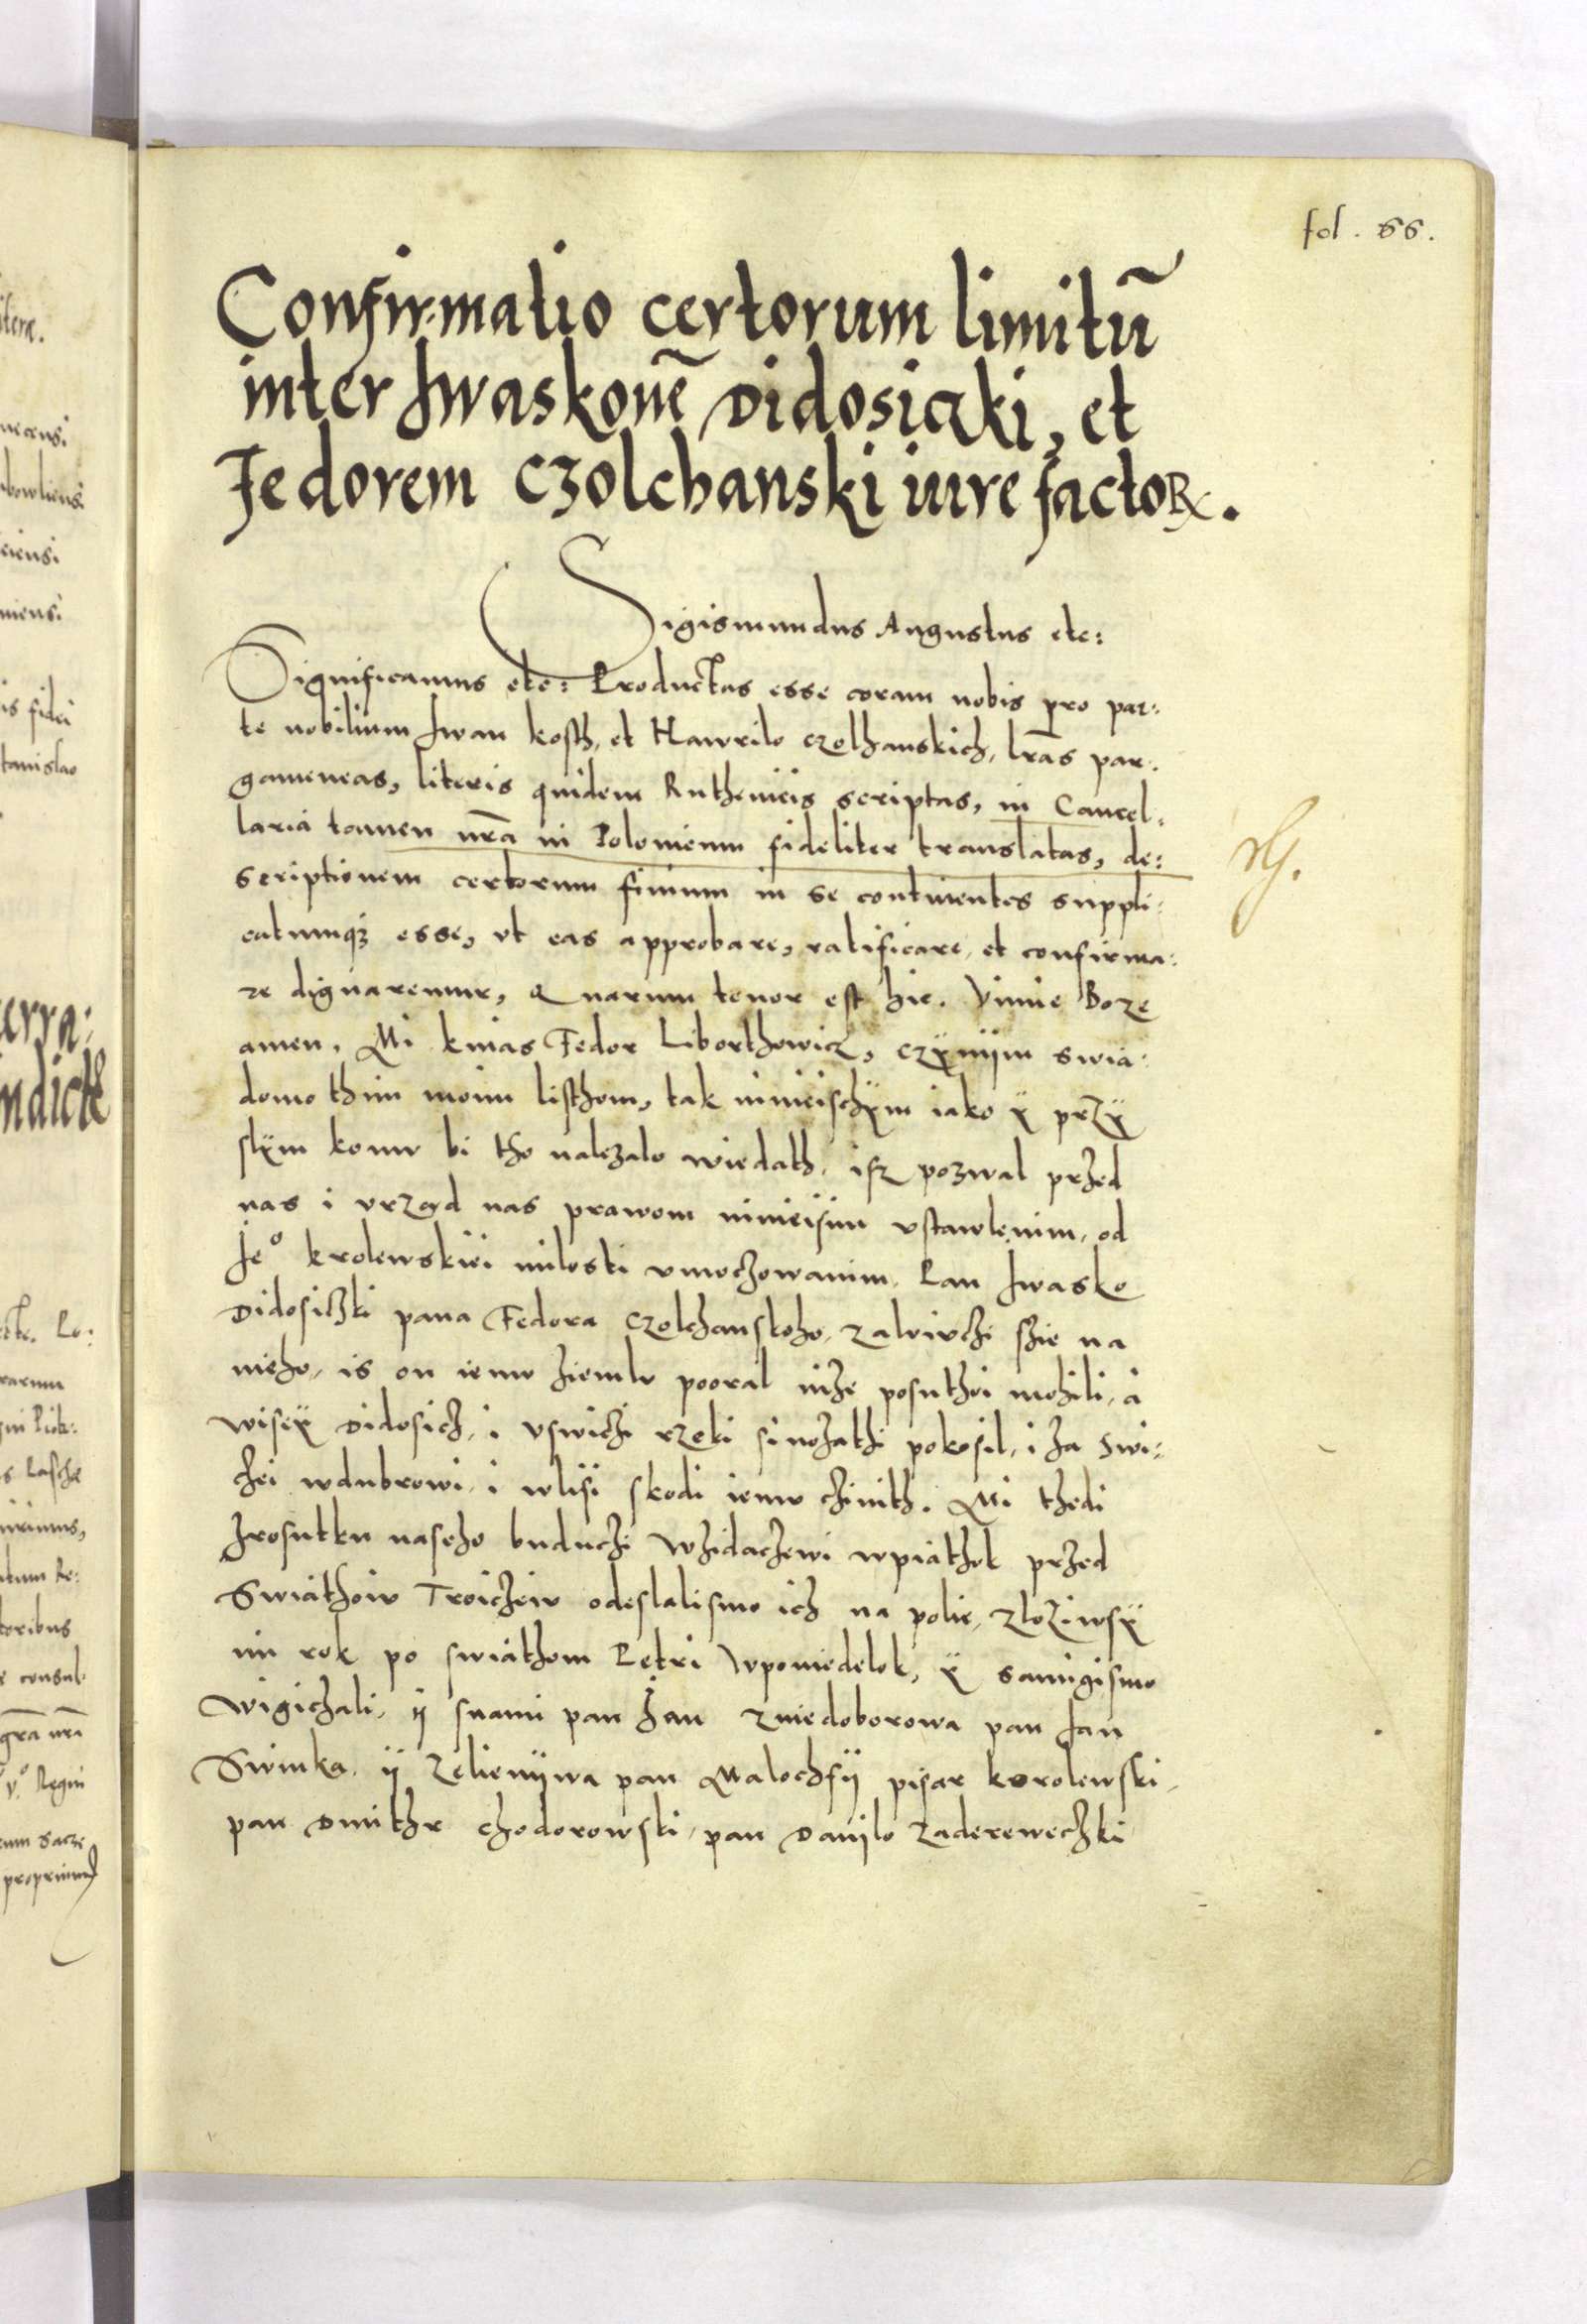 fol. 66.
Confirmatio certorum limitū
inter Iwaskonē Didosiczki, et
Fedorem Czolchanski iure factoꝝ.
Sigismundus Augustus etc:
Significamus etc: Productas esse coram nobis pro par:
te nobilium Iwan Kosth, et Hawrilo Czolhanskich, lrãs par.
gameneas, literis quidem Ruthenicis scriptas, in Cancel.
laria tamen nrã in Polonicum fideliter translatas, de:
scriptionem certorum finium in se continentes suppli:
catumqȝ esse, vt eas approbare, ratificare, et confirma:
re dignaremur, Quarum tenor est hic. Vimie Boze
amen, Mi knias Fedor Liborthowicz, czÿnijm swia:
domo thim moim listhom, tak ninieischÿm iako ÿ przÿ
slÿm komu bi tho nalezalo wiedath, isz pozwal przed
nas i vrząd nas prawom ninieisim vstawlenim, od
Ieº krolewskiei milosti vmoczowanim, Pan Iwasko
Didosiczki pana Fedora Czolchanskoho, zalvivchi shie na
nieho, is on iemu ziemlv pooral niże posuthoi mohili, a
wiseÿ Didosich, i vswichi rzeki sinozathi pokosil, i za Swi:
chei wdubrowi, i wlisi skodi iemu chinith. Mi thedi
hrosutku naseho buduchi Whidachewi wpiathok przed
Swiathoiv Troicheiv odeslalismo ich na polie, zloziwsÿ
im rok po swiathom Petri Wponiedelok, ÿ samigismo
wigichali, ij snami pan Jan zniedoborowa pan Jan
Swinka, ij zelienijwa pan Malochfij pisar korolewski,
pan Dmithr Chodorowski, pan Danijlo Zaderewechki